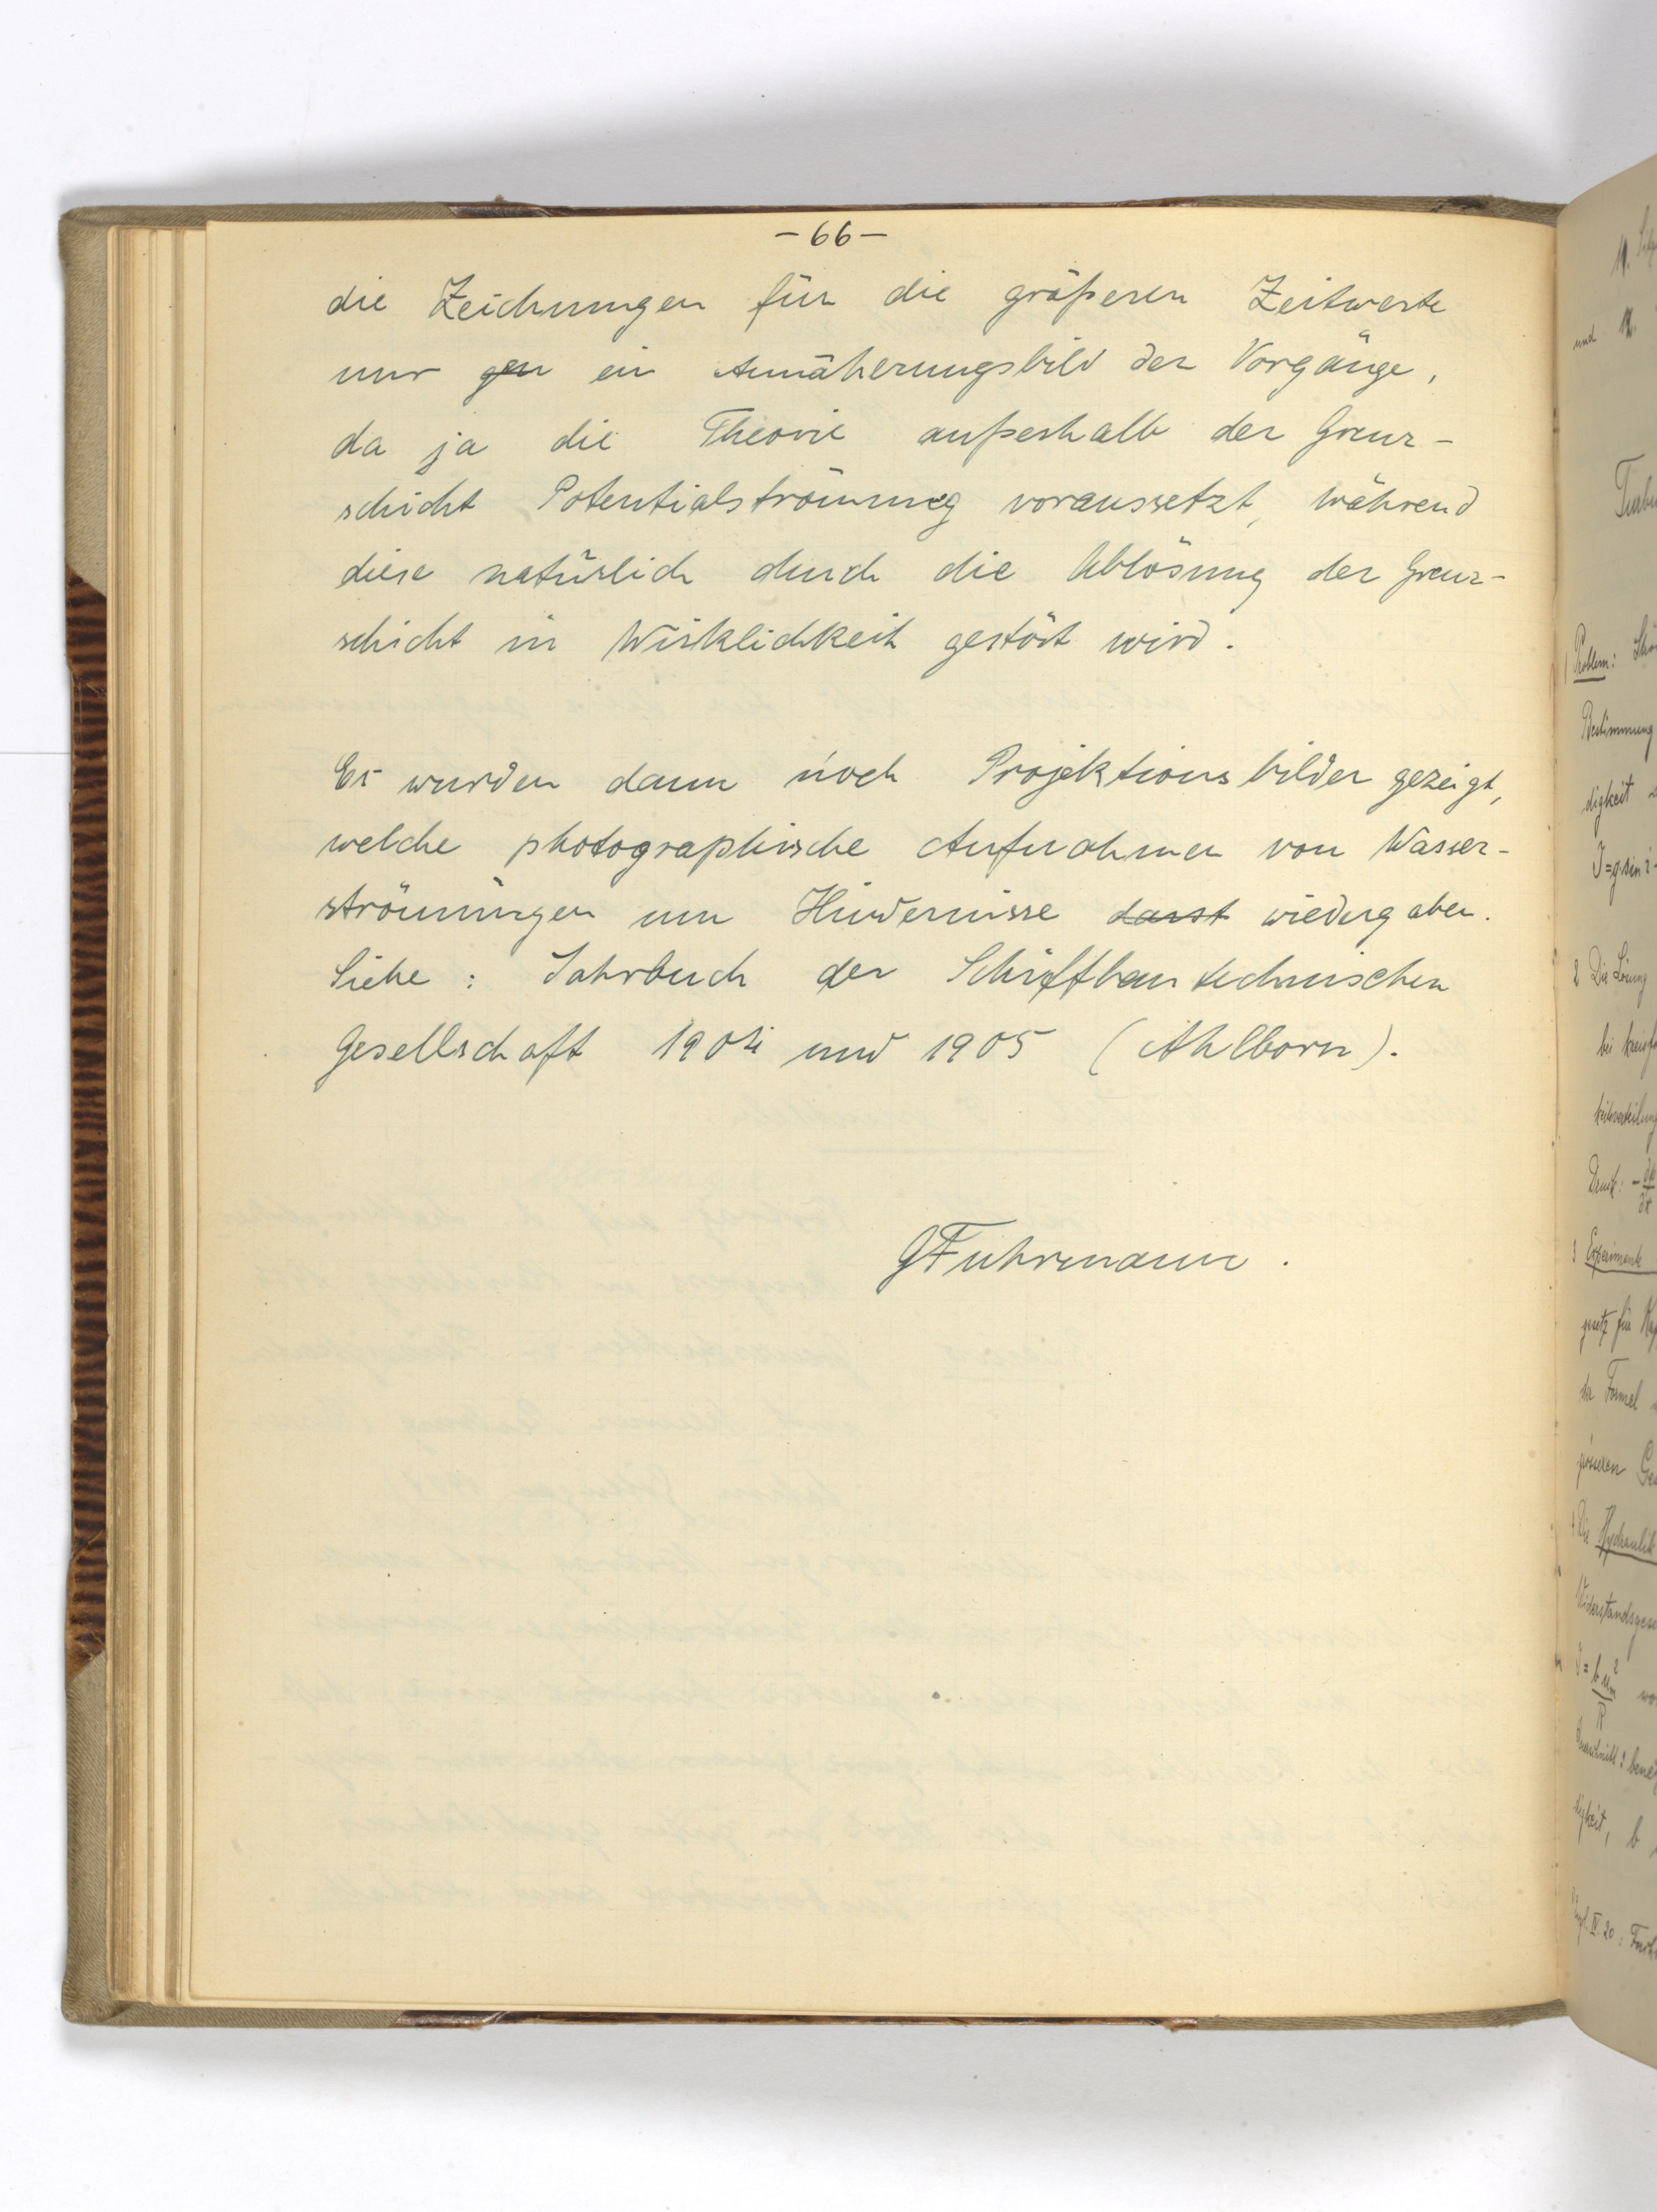 - 66 -
die Zeichnungen für die größeren Zeitwerte
nur gen ein Annäherungsbild der Vorgänge,
da ja die Theorie außerhalb der Grenz-
schicht Potentialströmung voraussetzt, während
diese natürlich durch die Ablösung der Grenz-
schicht in Wirklichkeit gestört wird.
Es wurden dann noch Projektionsbilder gezeigt,
welche photographische Aufnahmen von Wasser-
strömungen um Hindernisse darst wiedergaben.
Siehe: Jahrbuch der Schiffbautechnischen
Gesellschaft 1904 und 1905 (Ahlborn).
GFuhrmann.
und 12.
Problem:
Bestimmung
digkeit
J=g sin i
2 Die Lösung
bei
Druck:
3 Experimente
gesetz für
der Formel
grösseren
Die Hydraulik
digkeit, b